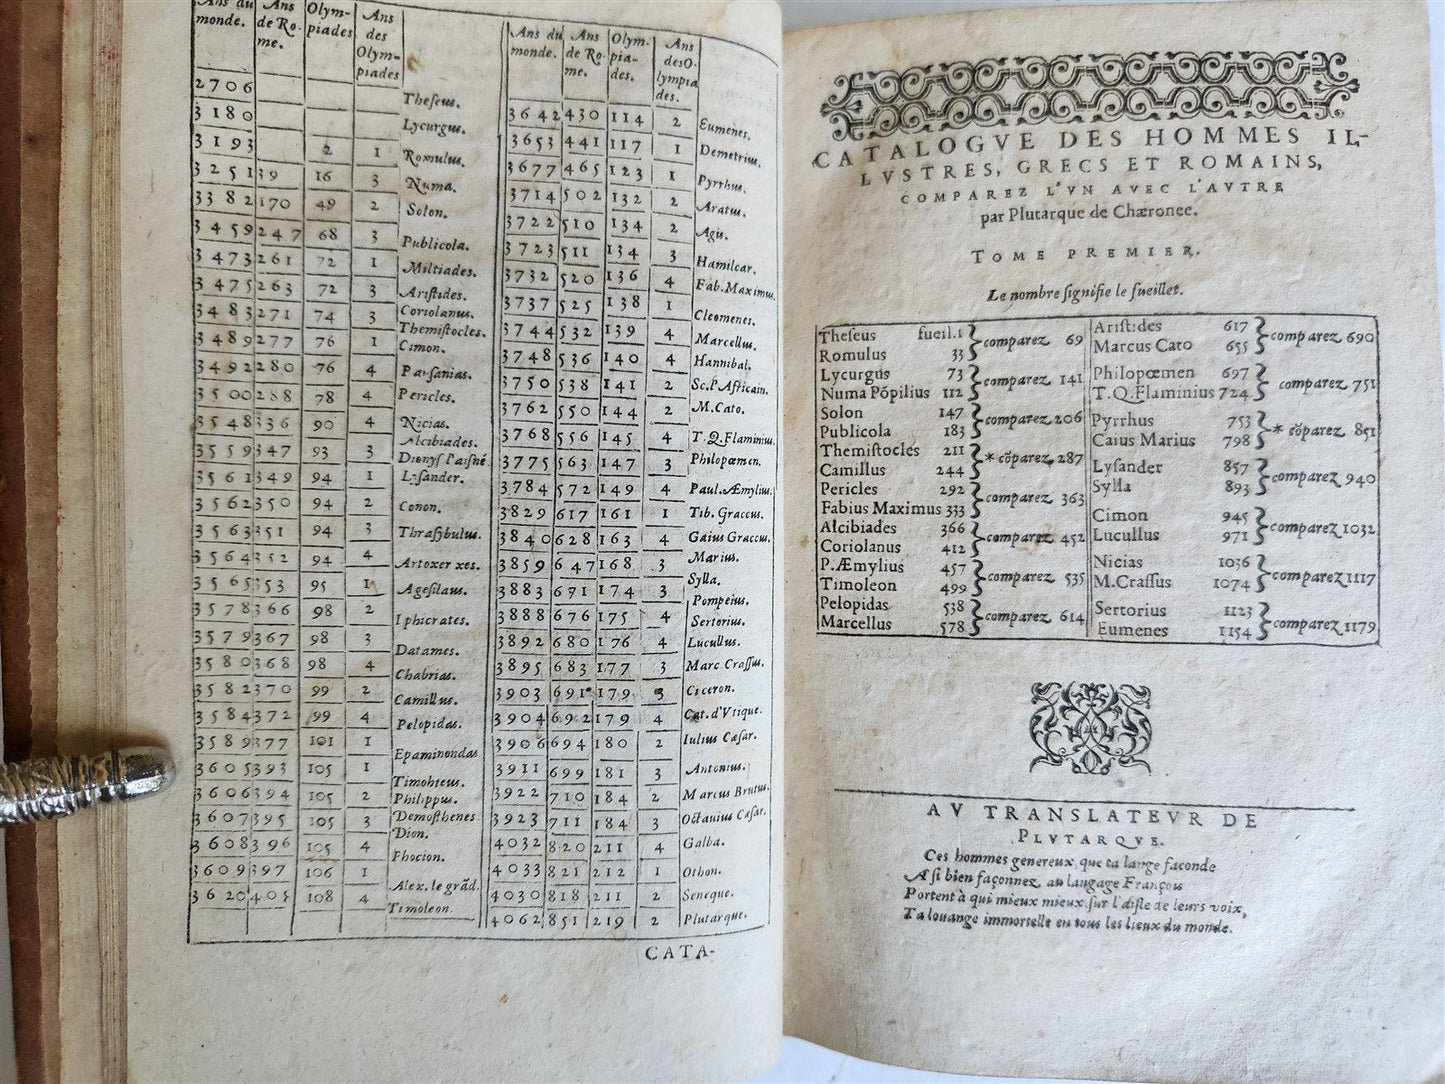 Ans du monde. Ans de Rome. Olympiades Ans des Olympiades
2706 Theseus.
3180 Lycurgus.
3193 2 1 Romulus.
3251 39 16 3 Numa.
3382 170 49 2 Solon.
3459 247 68 3 Publicola.
3473 261 72 1 Miltiades.
3475 263 72 3 Aristides.
3483 271 74 3 Coriolanus.
Themistocles.
3489 277 76 1 Cimon.
3492 280 76 4 Pausanias.
3500 288 78 4 Pericles.
3548 336 90 4 Nicias.
Alcibiades.
3559 347 93 3 Dionys l'aisné
3561 349 94 1 Lysander.
3562 350 94 2 Conon.
3563 351 94 3 Thrasybulus.
3564 352 94 4 Artoxerxes.
3565 353 95 1 Agesilaus.
3578 366 98 2 Iphicrates.
3579 367 98 3 Datames.
3580 368 98 4 Chabrias.
3582 370 99 2 Camillus.
3584 372 99 4 Pelopidas.
3589 377 101 1 Epaminondas
3605 393 105 1 Timohteus.
3606 394 105 2 Philippus.
3607 395 105 3 Demosthenes
Dion.
3608 396 105 4 Phocion.
3609 397 106 1 Alex. le grãd.
3620 408 108 4 Timoleon.
Ans du monde. Ans de Rome. Olympiades. Ans des Olympiades.
3642 430 114 2 Eumenes.
3653 441 117 1 Demetrius.
3677 465 123 1 Pyrrhus.
3714 502 132 2 Aratus.
3722 510 134 2 Agis.
3723 511 134 3 Hamilcar.
3732 520 136 4 Fab. Maximus.
3737 525 138 1 Cleomenes.
3744 532 139 4 Marcellus.
3748 536 140 4 Hannibal.
3750 538 141 2 Sc. l'Africain.
3762 550 144 2 M. Cato.
3768 556 145 4 T. Q. Flaminius.
3775 563 147 3 Philopœmen.
3784 572 149 4 Paul. Æmylius.
3829 617 161 1 Tib. Graccus.
3840 628 163 4 Gaius Graccus.
3859 647 168 3 Marius.
Sylla.
3883 671 174 3 Pompeius.
3888 676 175 4 Sertorius.
3892 680 176 4 Lucullus.
3895 683 177 3 Marc Crassus.
3903 691 179 3 Ciceron.
3904 692 179 4 Cat. d'Vtique.
3906 694 180 2 Iulius Cæsar.
3911 699 181 3 Antonius.
3922 710 184 2 Marcus Brutus.
3923 711 184 3 Octauius Cæsar.
4032 820 211 4 Galba.
4033 821 212 1 Othon.
4030 818 211 2 Seneque.
4062 851 219 2 Plutarque.
CATA-
CATALOGVE DES HOMMES IL-
LVSTRES, GRECS ET ROMAINS,
COMPAREZ L'VN AVEC L'AVTRE
par Plutarque de Chæronee.
TOME PREMIER.
Le nombre signifie le fueillet.
Theseus fueil. 1
Romulus 33 comparez 69
Lycurgus 73
Numa Põpilius 112 comparez 141
Solon 147
Publicola 183 comparez 206
Themistocles 211
Camillus 244 * cõparez 287
Pericles 292
Fabius Maximus 333 comparez 363
Alcibiades 366
Coriolanus 412 comparez 452
P. Æmylius 457
Timoleon 499 comparez 535
Pelopidas 538
Marcellus 578 comparez 614
Aristides 617
Marcus Cato 655 comparez 690
Philopœmen 697
T. Q. Flaminius 724 comparez 751
Pyrrhus 753
Caius Marius 798 * cõparez 851
Lysander 857
Sylla 893 comparez 940
Cimon 945
Lucullus 971 comparez 1032
Nicias 1036
M. Crassus 1074 comparez 1117
Sertorius 1123
Eumenes 1154 comparez 1179
AV TRANSLATEVR DE
PLVTARQVE.
Ces hommes genereux, que ta langue faconde
A si bien façonnez au langage François
Portent à qui mieux mieux sur l'aisle de leurs voix,
Ta louange immortelle en tous les lieux du monde.